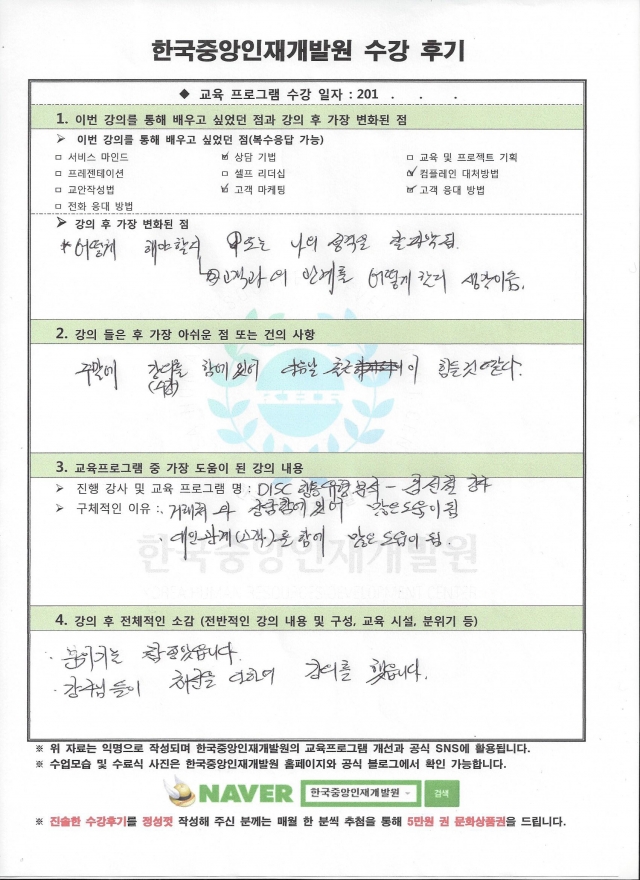 한국중앙인재개발원 수강 후기
◆ 교육 프로그램 수강 일자 : 201 . . .
1. 이번 강의를 통해 배우고 싶었던 점과 강의 후 가장 변화된 점
➢ 이번 강의를 통해 배우고 싶었던 점(복수응답 가능)
□ 서비스 마인드 ☑ 상담 기법 □ 교육 및 프로젝트 기획
□ 프레젠테이션 □ 셀프 리더십 ☑ 컴플레인 대처방법
□ 교안작성법 ☑ 고객 마케팅 ☑ 고객 응대 방법
□ 전화 응대 방법
➢ 강의 후 가장 변화된 점
* 어떻게 해야할지 ① 또는 나의 성격을 잘
② 고객과의 관계를 어떻게 할지 생각이듬.
2. 강의 들은 후 가장 아쉬운 점 또는 건의 사항
주말에 강의를 함에 있어 이 힘든것 같다.
(수업)
3. 교육프로그램 중 가장 도움이 된 강의 내용
➢ 진행 강사 및 교육 프로그램 명 : DISC 행동유형분석 - 강사
➢ 구체적인 이유 : . 거래처 와 상담함에 있어 많은도움이 됨
. 대인관계(고객)를 함에 많은 도움이 됨.
한국중앙인재개발원
4. 강의 후 전체적인 소감 (전반적인 강의 내용 및 구성, 교육 시설, 분위기 등)
. 분위기는 참 좋았습니다.
. 강사님들이 최선을 다하여 강의를 했습니다.
※ 위 자료는 익명으로 작성되며 한국중앙인재개발원의 교육프로그램 개선과 공식 SNS에 활용됩니다.
※ 수업모습 및 수료식 사진은 한국중앙인재개발원 홈페이지와 공식 블로그에서 확인 가능합니다.
NAVER 한국중앙인재개발원 검색
※ 진솔한 수강후기를 정성껏 작성해 주신 분께는 매월 한 분씩 추첨을 통해 5만원 권 문화상품권을 드립니다.